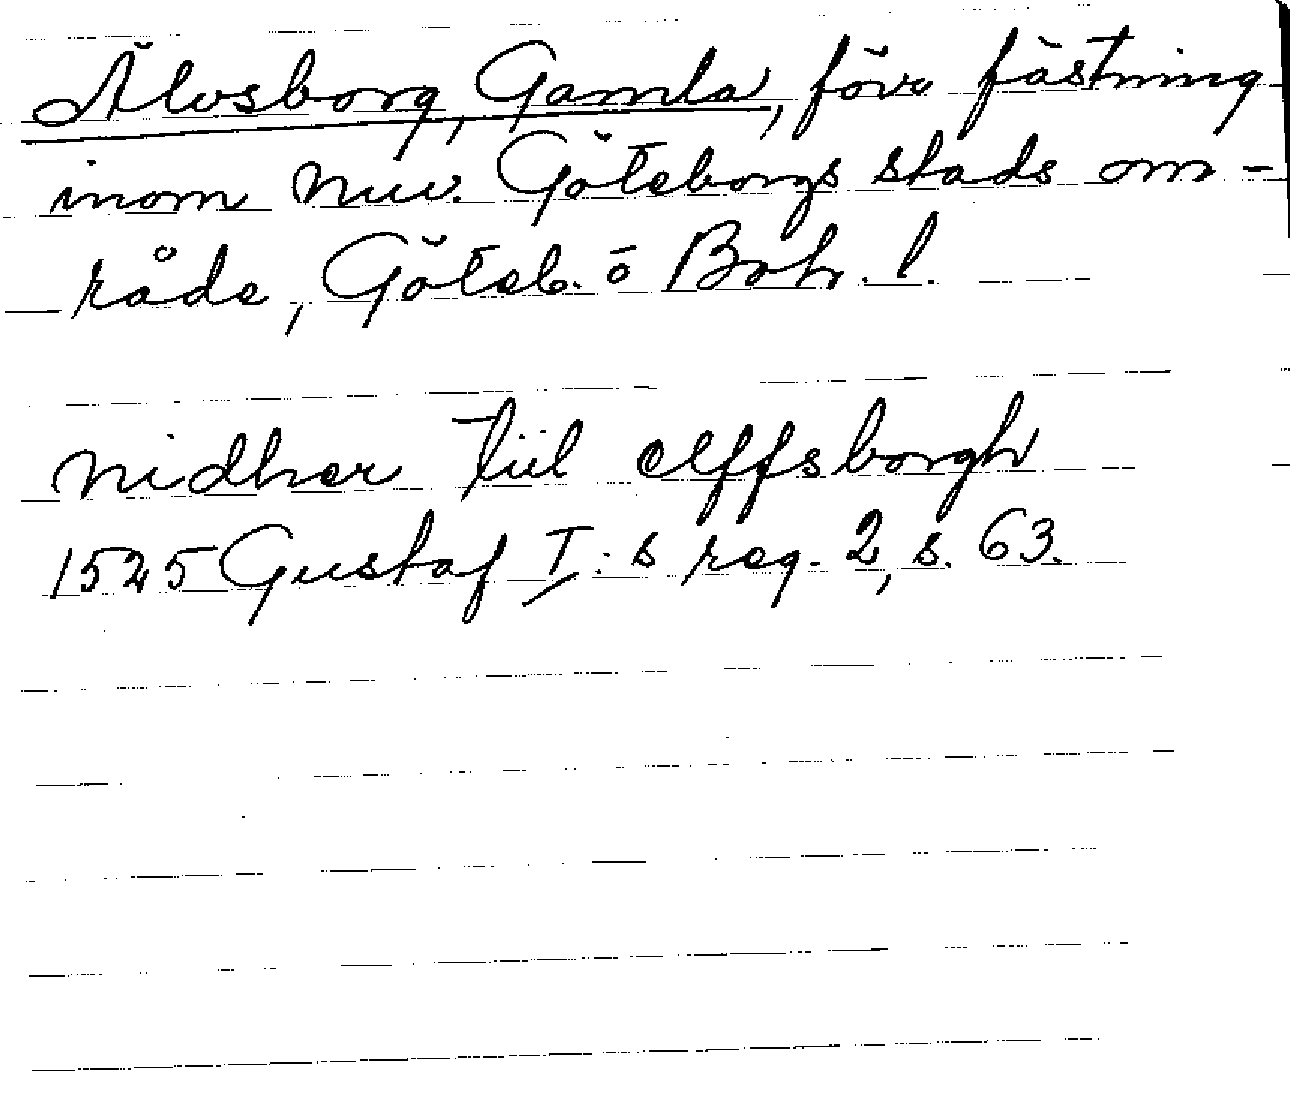 Älvsborg, Gamla, förr fästning
inom nuv. Göteborgs stads om-
råde, Göteb. o Boh. l.
nidher tiil elffsborgh
1525 Gustaf I:s reg. 2, s. 63.